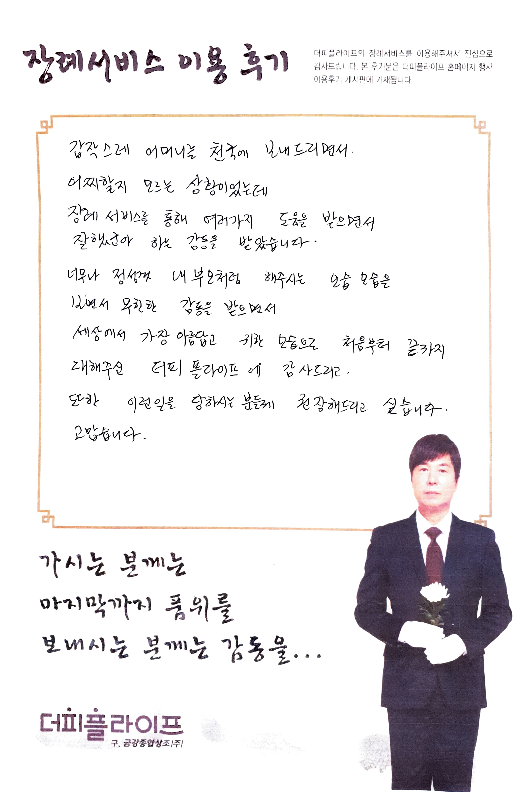 장례서비스 이용 후기
더피플라이프의 장례서비스를 이용해주셔서 진심으로
감사드립니다. 본 후기글은 더피플라이프 홈페이지 행사
이용후기 게시판에 기재됩니다.
갑작스레 어머니는 천국에 보내드리면서.
어찌할지 모르는 상황이었는데
장례 서비스를 통해 여러가지 도움을 받으면서
잘했구나 하는 감동을 받았습니다.
너무나 정성껏 내 부모처럼 해주시는 모습 모습을
보면서 무한한 감동을 받으면서
세상에서 가장 아름답고 귀한 모습으로 처음부터 끝까지
대해주신 더피플라이프에 감사드리고.
또한 이런일을 당하시는 분들께 권장해드리고 싶습니다.
고맙습니다.
가시는 분께는
마지막까지 품위를
보내시는 분께는 감동을...
더피플라이프
구. 금강종합상조(주)